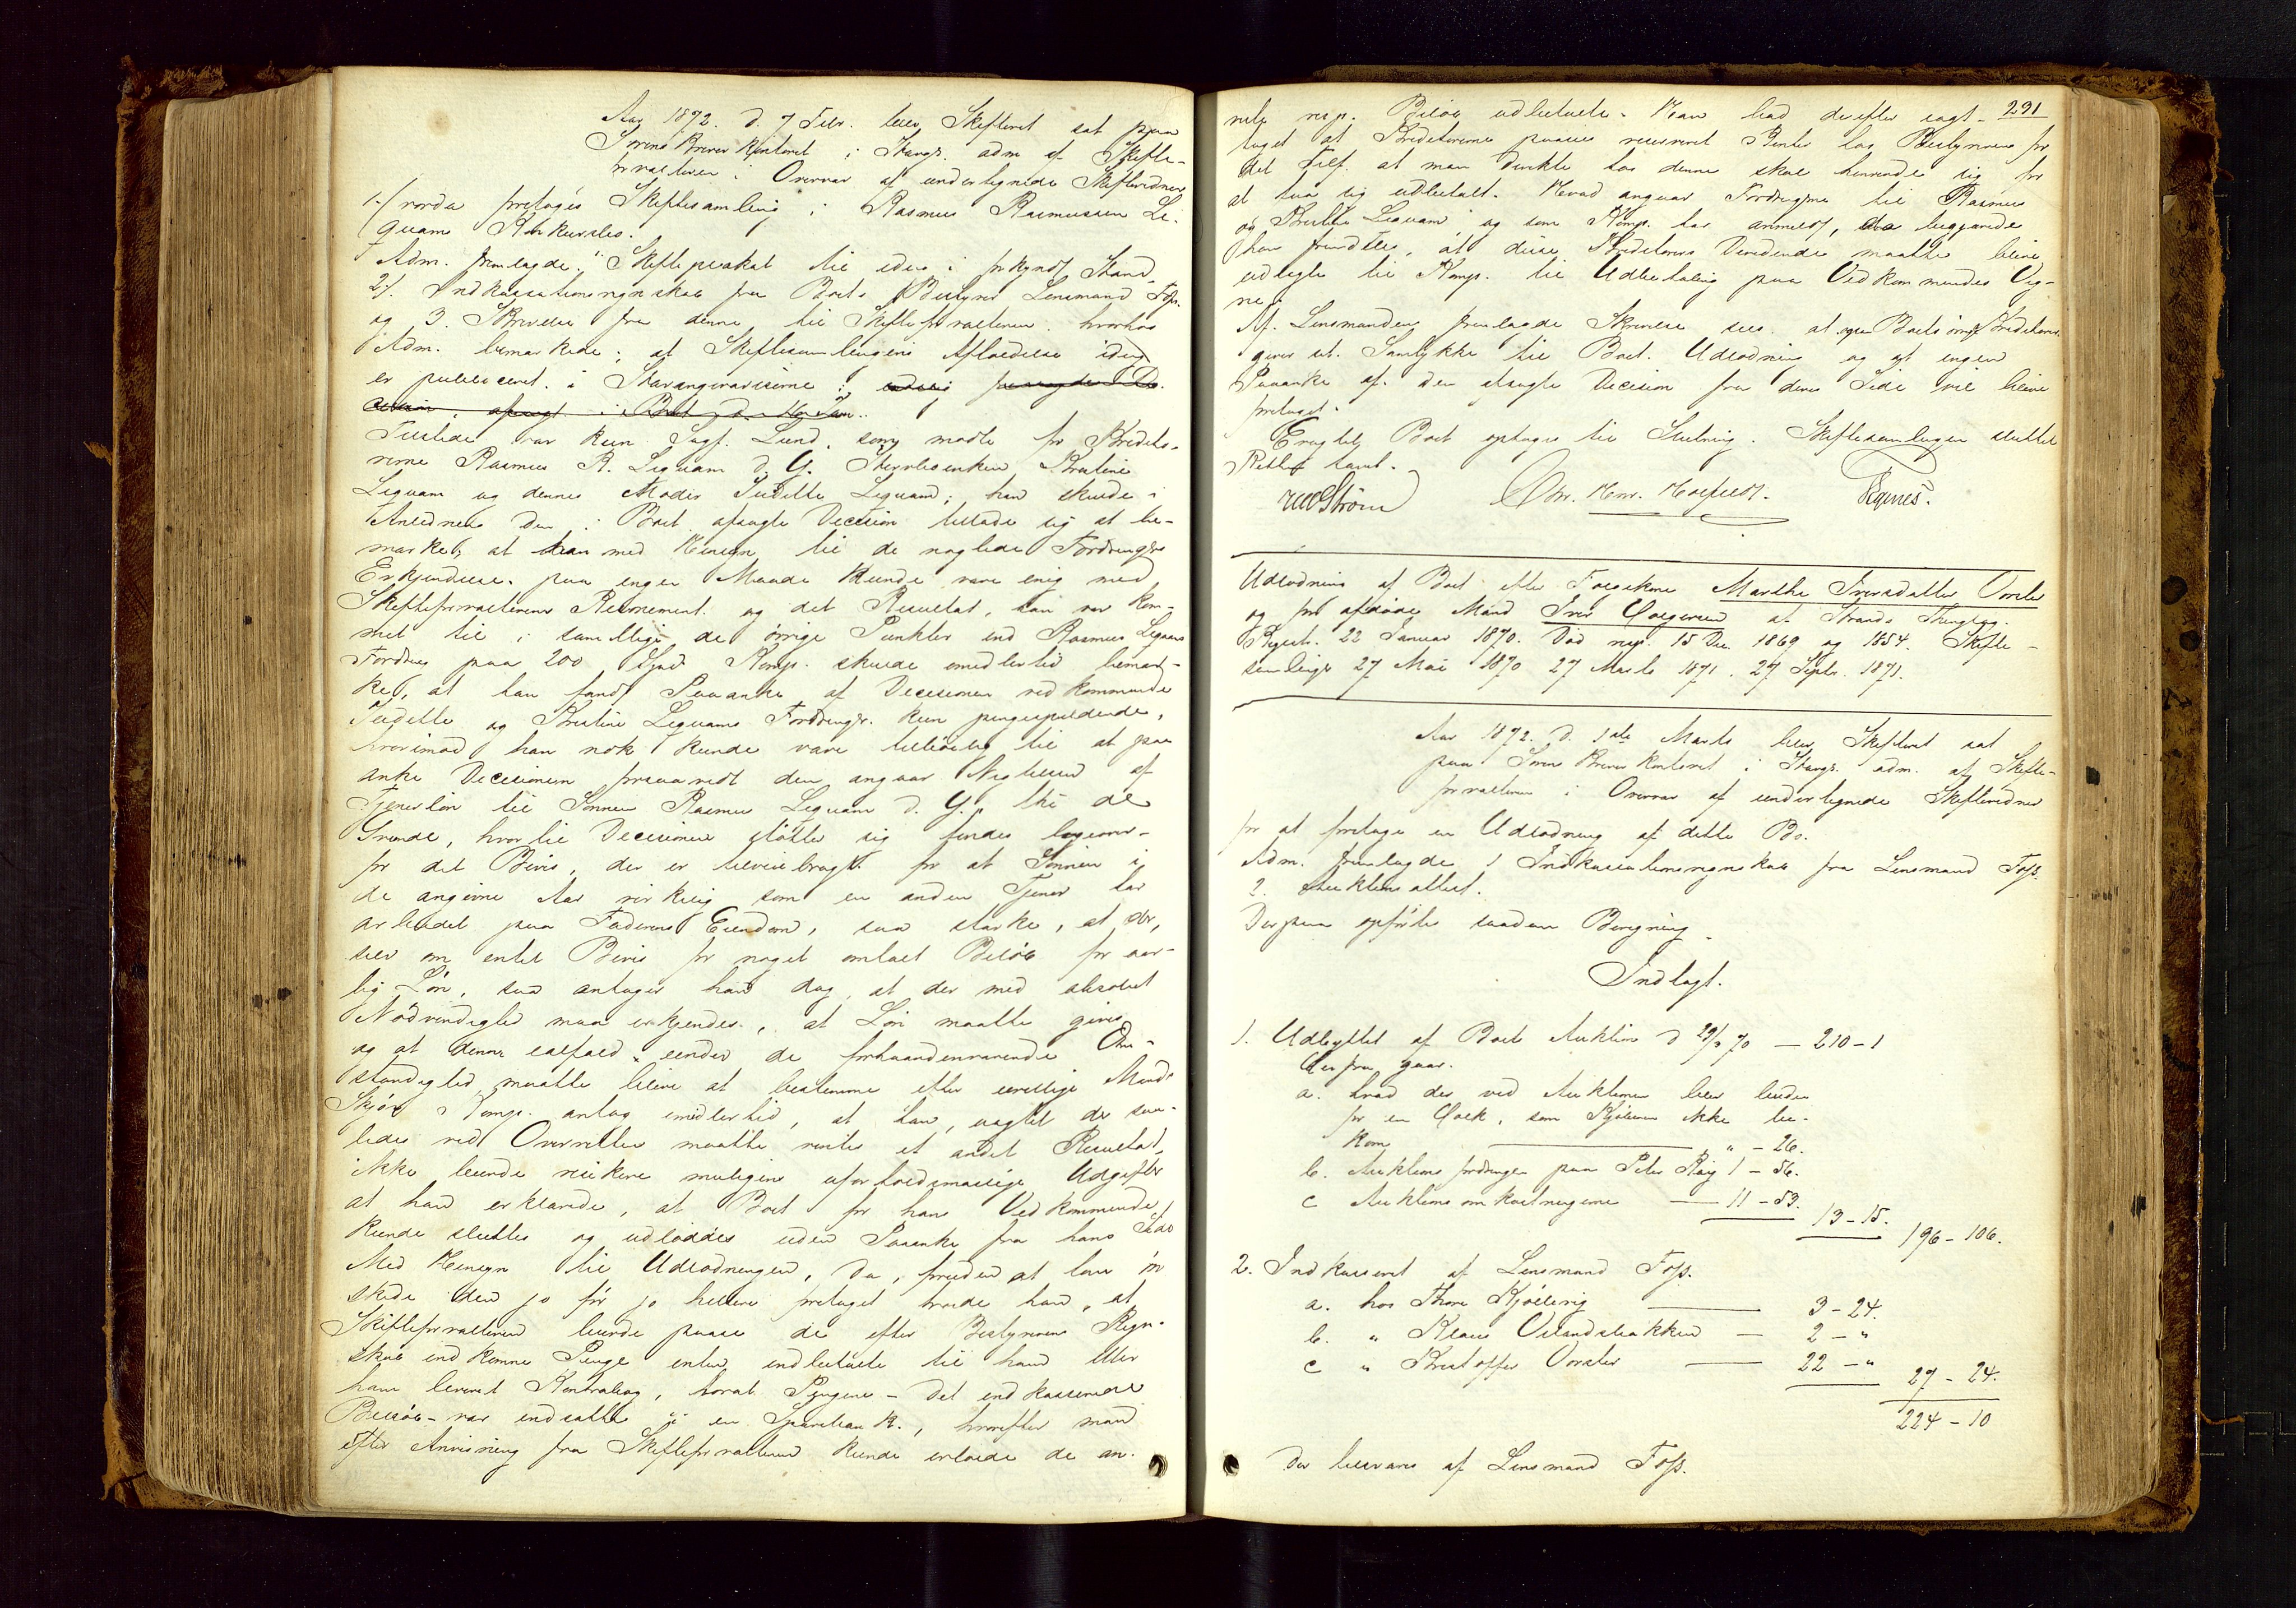 Aar 1872. d. 7 Febr. blev Skifteret sat paa
Sorenskriver Kontoret i Stavgr. adm. af Skifte-
forvalteren i Overvær af undertegnede Skiftevidner
hvorda foretoges Skiftesamling i Rasmus Rasmussen Le-
quams Konkursbo.
Adm. fremlagde: 1. Skifteplakat til idag i forkyndt Stand,
2). Indkassationsregnskab fra Boets Bestyrer Lensmand Foss.
og 3. Skrivelse fra denne til Skifteforvalteren. hvorhos
Adm. bemærkede: at Skiftesamlingens Afholdelse idag
er publiceret i Stavangeraviserne;
Tilstede var kun Sagf. Lund, som mødte for Kredito-
rerne Rasmus R. Lequam d. Y. Kristine
Lequam og dennes Moder Judithe Lequam; han skulde i
Anledning den i Boet afsagte Decision tillade sig at be-
mærke, at han med Hensyn til de nægtede Fordringers
Erkjendelse paa ingen Maade kunde være enig med
Skifteforvalterens Raisonement og det Resultat, han var kom-
met til i samtlige de øvrige Punkter end Rasmus Lequams
Fordring paa 200 Komp. skulde imidlertid bemær-
ke, at han fandt Paaanke af Decisionen vedkommende
Judithe og Kristine Lequams Fordringer kun pengespildende,
hvorimod han nok kunde være tilbøielig til at paa
anke Decisionen forsaavidt den angaar Nægtelsen af
Tjenerløn til Sønnen Rasmus Lequam d. Y., thi de
Grunde, hvortil Decisionen støtter sig findes ligeover-
for det Bevis, der er tilveiebragt for at Sønnen i
de angivne Aar virkelig som en anden Tjener har
arbeidet paa Faderens Eiendom, saa stærke, at der,
selv om intet Bevis for noget omtalt Beløb for aar-
lig Løn, saa antager han dog, at der med absolut
Nødvendighed maa erkjendes, at Løn maatte gives
og at denne ialfald under de forhaandenværende Om-
stændighed maatte blive at bestemme efter uvillige Mænds
Skjøn. Komp. antog imidlertid, at han, uagtet der saa-
ledes ved Overretten maatte ventes et andet Resultat,
ikke burde risikere muligens uforholdsmæssige Udgifter
at han erklærede, at Boet for hans Vedkommende
kunde sluttes og udloddes uden Paaanke fra hans Side
Med Hensyn til Udlodningen, da, foruden at han øn
skede den jo før jo hellere foretaget troede han, at
Skifteforvalteren burde paase de efter Bestyrerens Regn-
skab indkomne Penge enten indbetalte til ham eller
ham leveret Kontrabog, hvorat Pengene - det indkasserede
Beløb - var indsatte i en Sparebank., hvorefter man
efter Anvisning fra Skifteforvalteren kunde erholde de an-
291
viste resp. Beløb udbetalte. Han lod derefter iagt-
taget at Kreditorerne paase reserveret Renter hos Bestyreren for
det Tilf. at man direkte hos denne skal henvende sig for
at faa sig udbetalt. Hvad angaar Fordringerne til Rasmus
og Birthe Lequam og som Komp. har anmeldt, da begjærede
han fremdeles, at disse Kreditorers Dividende maatte blive
udlagte til Komp. til Udbetaling paa Vedkommendes Veg-
ne.
Af Lensmandens fremlagde Skrivelse sees at Boets øvrige Kreditorer
giver sit Samtykke til Boets Udlodning og at ingen
Paaanke af den afsagte Decision fra deres Side vil blive
foretaget.
Eragtet Boet optages til Slutning. Skiftesamlingen sluttet
Retten hævet.
Chr. Hnr. Holfeldt.
Udlodning af Boet efter Folgekone Marthe Iversdatter Vorste
og før afdøde Mand Iver Colgersen af Strands Thinglag.
Regist. 22 Januar 1870. Død resp. 15 Dec. 1869 og 1854. Skifte-
samlinger 27 Mai 1870 27 Marts 1871. 27 Septr. 1871.
Aar 1872. d. 1ste Marts blev Skifteret sat
paa Sorenskriver Kontoret i Stavgr. adm. af Skifte-
forvalteren i Overvær af undertegnede Skiftevidner
for at foretage en Udlodning af dette Bo.
Adm. fremlagde 1 Indkassationsregnskab fra Lensmand Foss.
2. Auktions attest.
Derpaa opførtes saadan Beregning
Indtægt.
1. Udbyttet af Boets Auktion d 29/3 70 — 210-1
Herfra gaar.
a. hvad der ved Auktionen blev buden
for en , som Kjøberen ikke be-
kom — " - 26.
b. Auktions fordringer paa Peter Røig 1 - 56.
c Auktions omkostningerne — 11 - 53.
13 - 15.
196 - 106.
2. Indkasseret af Lensmand Foss.
a. hos Thore Kjølevig — 3 - 24.
b. " Klaus — 2 - "
c " Kristoffer Vorster — 22 - "
27 - 24.
224 - 10
der besvares af Lensmand Foss.